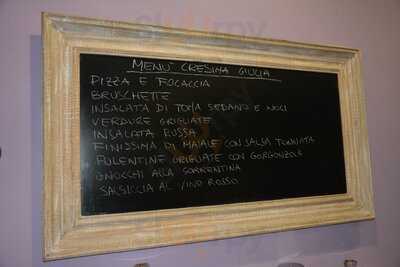 MENU' CRESIMA GIULIA
PIZZA E FOCACCIA
BRUSCHETTE
INSALATA DI TOMA SEDANO E NOCI
VERDURE GRIGLIATE
INSALATA RUSSA
FINISSIMA DI MAIALE CON SALSA TONNATA
POLENTINE GRIGLIATE CON GORGONZOLA
GNOCCHI ALLA SORRENTINA
SALSICCIA AL VINO ROSSO